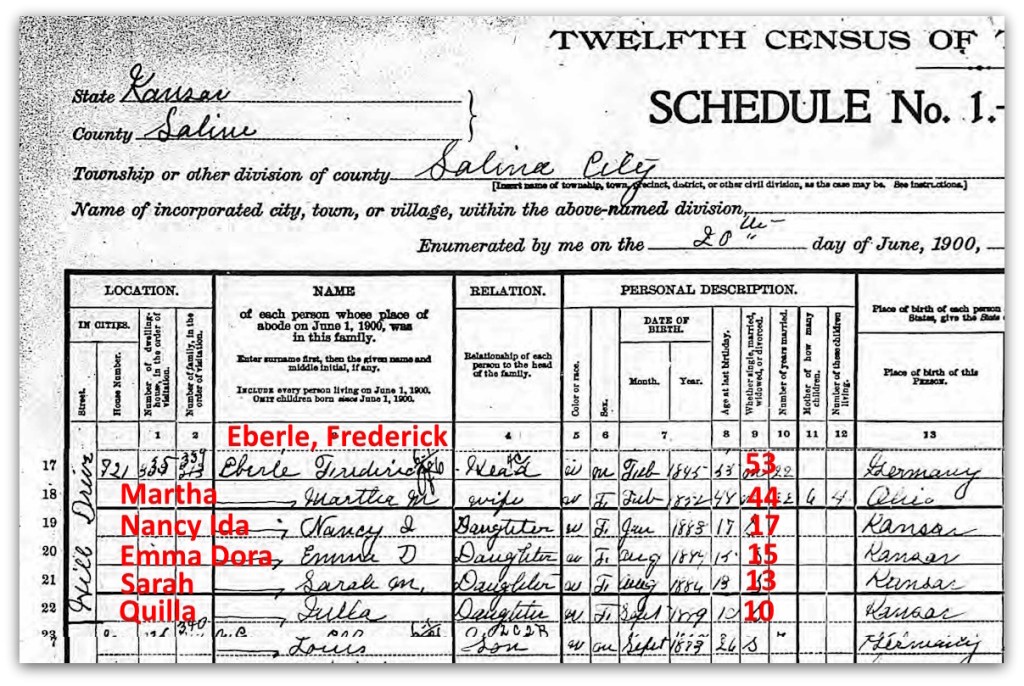 TWELFTH CENSUS OF
State Kansas
SCHEDULE No. 1.-
County Saline
Township or other division of county Salina City
[Insert name of township, town, precinct, district, or other civil division, as the case may be. See instructions.]
Name of incorporated city, town, or village, within the above-named division,
Enumerated by me on the 20th day of June, 1900,
LOCATION. NAME RELATION. PERSONAL DESCRIPTION.
IN CITIES.
Street.
House Number.
Number of dwelling-house, in the order of visitation.
Number of family, in the order of visitation.
of each person whose place of
abode on June 1, 1900, was
in this family.
Enter surname first, then the given name and
middle initial, if any.
INCLUDE every person living on June 1, 1900.
OMIT children born since June 1, 1900.
Relationship of each
person to the head
of the family.
Color or race.
Sex.
DATE OF
BIRTH.
Month. Year.
Age at last birthday.
Whether single, married, widowed, or divorced.
Number of years married.
Mother of how many children.
Number of these children living.
Place of birth of each person
States, give the State
Place of birth of this
PERSON.
1 2 4 5 6 7 8 9 10 11 12 13
Eberle, Frederick
Hill Drive
17 Eberle Frederick Head m Feb 53 22 Germany
18 Martha Martha M wife F Feb 44 6 4 Ohio
19 Nancy Ida Nancy I Daughter w F Jan 1883 17 S 17 Kansas
20 Emma Dora Emma D Daughter w F Aug 1884 15 15 Kansas
21 Sarah Sarah M. Daughter w F Aug 13 13 Kansas
22 Quilla Daughter w F Sept 1889 10 10 Kansas
23 Louis Son w m Sept 26 S Germany